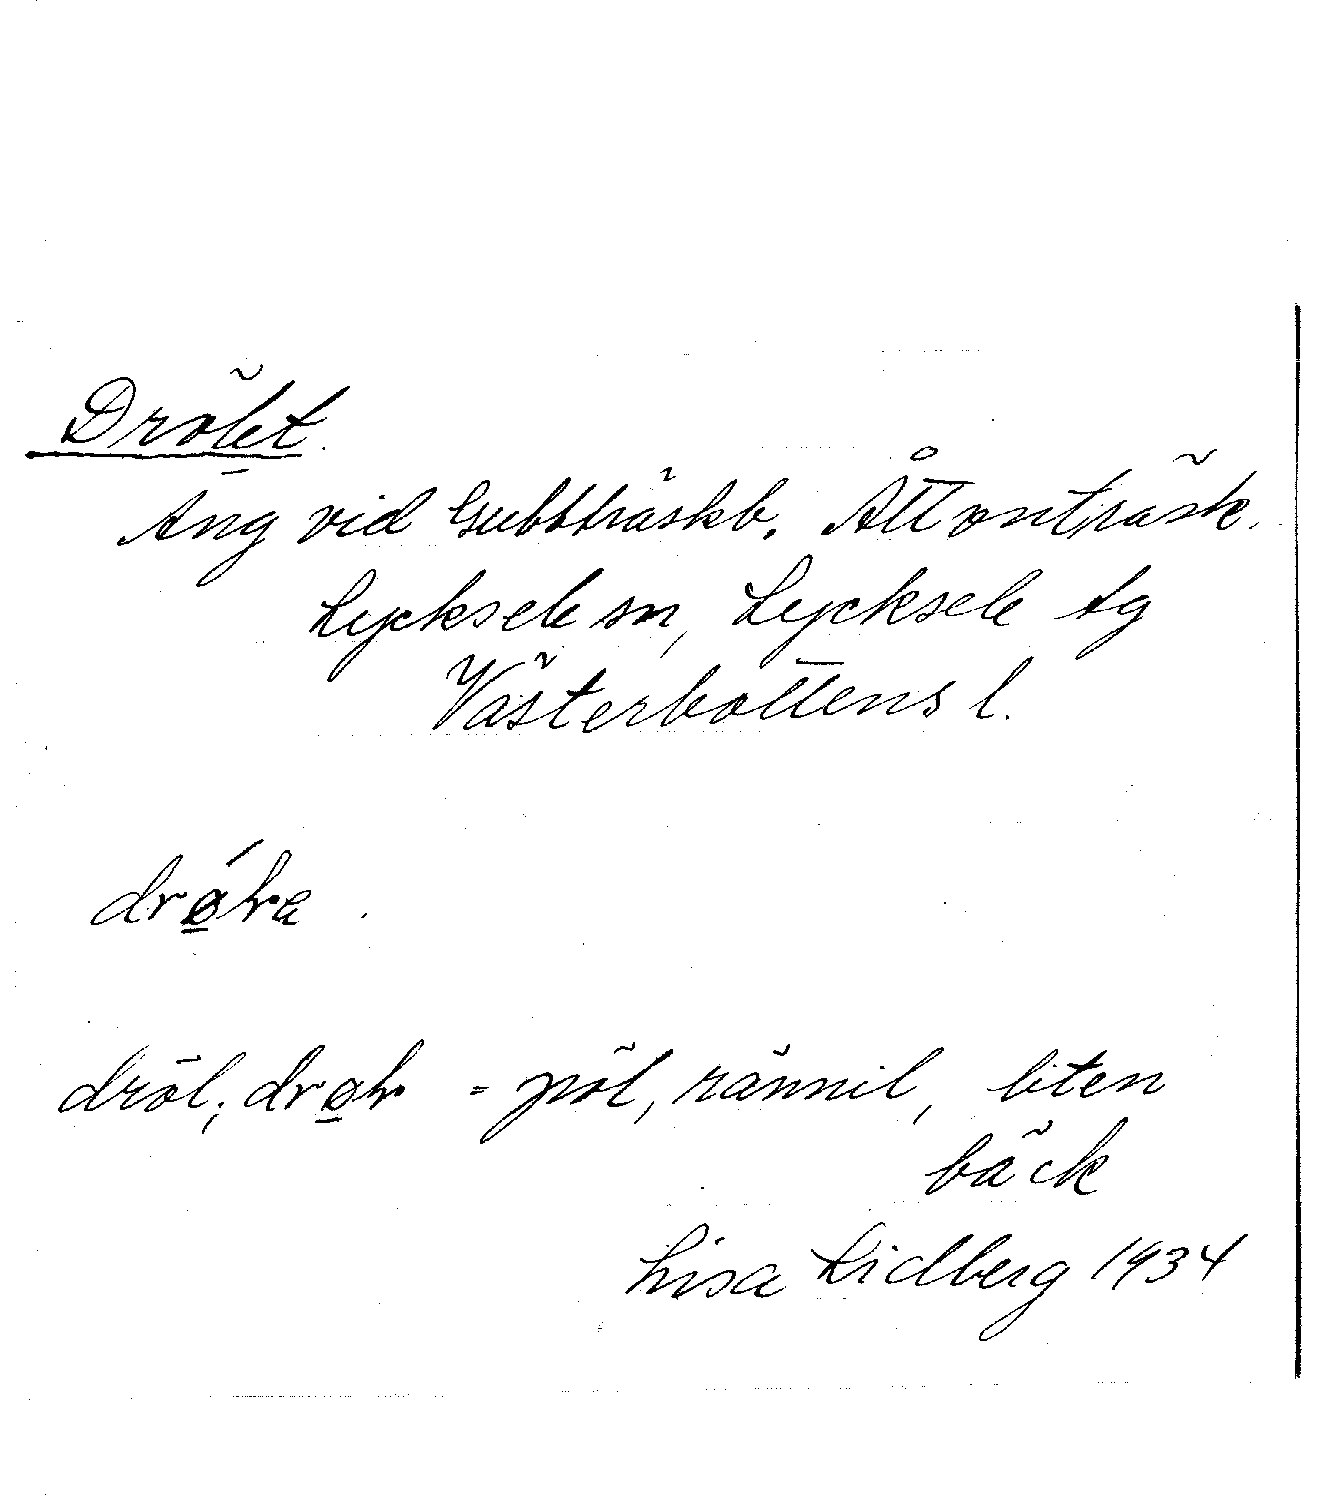 Drölet.
Äng vid Gubbträskb. Åttonträsk.
Lycksele sn, Lycksele tg
Västerbottens l.
dröl; = pöl, rännil, liten
bäck
Lisa Lidberg 1934